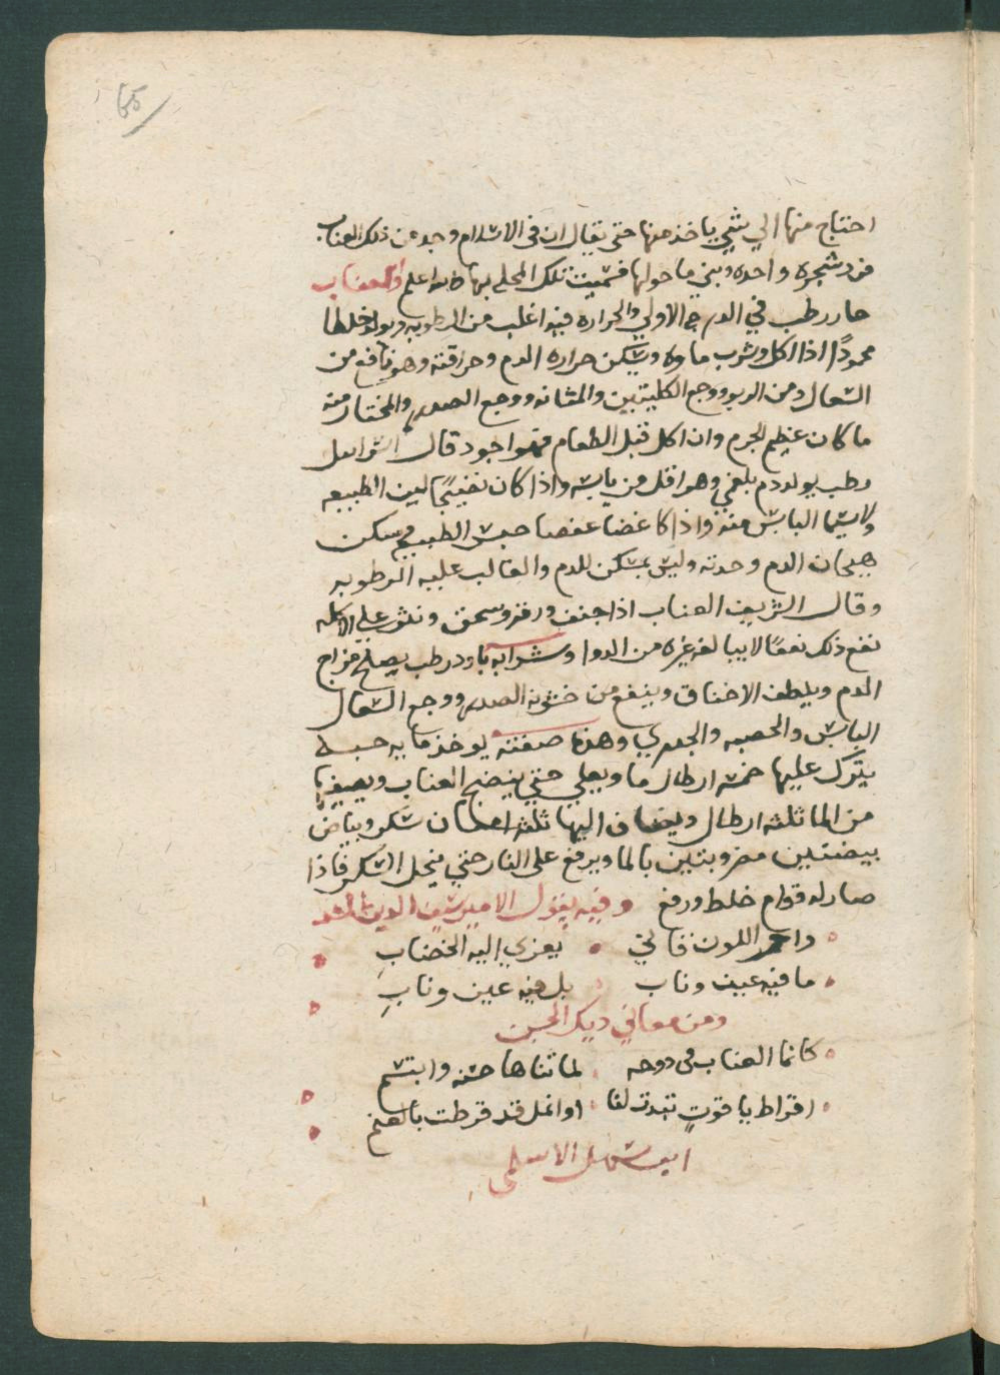 65
احتاج منها الي شي ياخذ منها حتى يقال ان في الاسلام وجد من ذلك العناب
من شجره واحده وبني ما حولها فسميت تلك المحله بها والله اعلم والعناب
حار رطب في الدرجه الاولي والحراره فيه اغلب من الرطوبه ويولد خلطا
محمودًا اذا اكل وشرب ماوه ويسكن حراره الدم وحراقته وهو نافع من
السعال ومن الربو ووجع الكليتين والمثانه ووجع الصدر والمختار منه
ما كان عظيم الجرم وان اكل قبل الطعام فهو اجود قال
رطب يولد دم بلغمي وهو اقل من يابسه واذا كان نضيجًا لين الطبيعه
ولاسيما اليابس منه واذا كا غضا عفصا حبس الطبيعه ويسكن
هيجان الدم وحدته وليس بمسكن للدم والغالب عليه الرطوبه
وقال الشريف العناب اذا جفف ورقه وسحق ونثر علي الاكله
نفع ذلك نفعًا لا يبالغه غيره من الدوا وشرابه بارد رطب يصلح مزاج
الدم ويلطف الاخناق وينفع من خشونة الصدر ووجع السعال
اليابس والحصبه والجدري وهذه صفته يوخذ مايه حبه
يترك عليها خمسه ارطال ما ويغلي حتي ينضج العناب ويصير
من الما ثلثه ارطال ويضاف اليها ثلثه امنان سكر وبياض
بيضتين مضروبتين بالما ويرفع على النار حتي ينحل السكر فاذا
صار له قوام خلط ورفع وفيه يقول الامير سيف الدين المشد
واحمر اللون قاني يعزي إليه الخضابِ
ما فيه عيب وناب بل فيه عين ونابِ
ومن معاني ديك الجن
كانما العناب في دوحه لما تناها حسنه وابتسم
اقراط ياقوتٍ تبدت لنا او انمل قد قرطت بالعنم